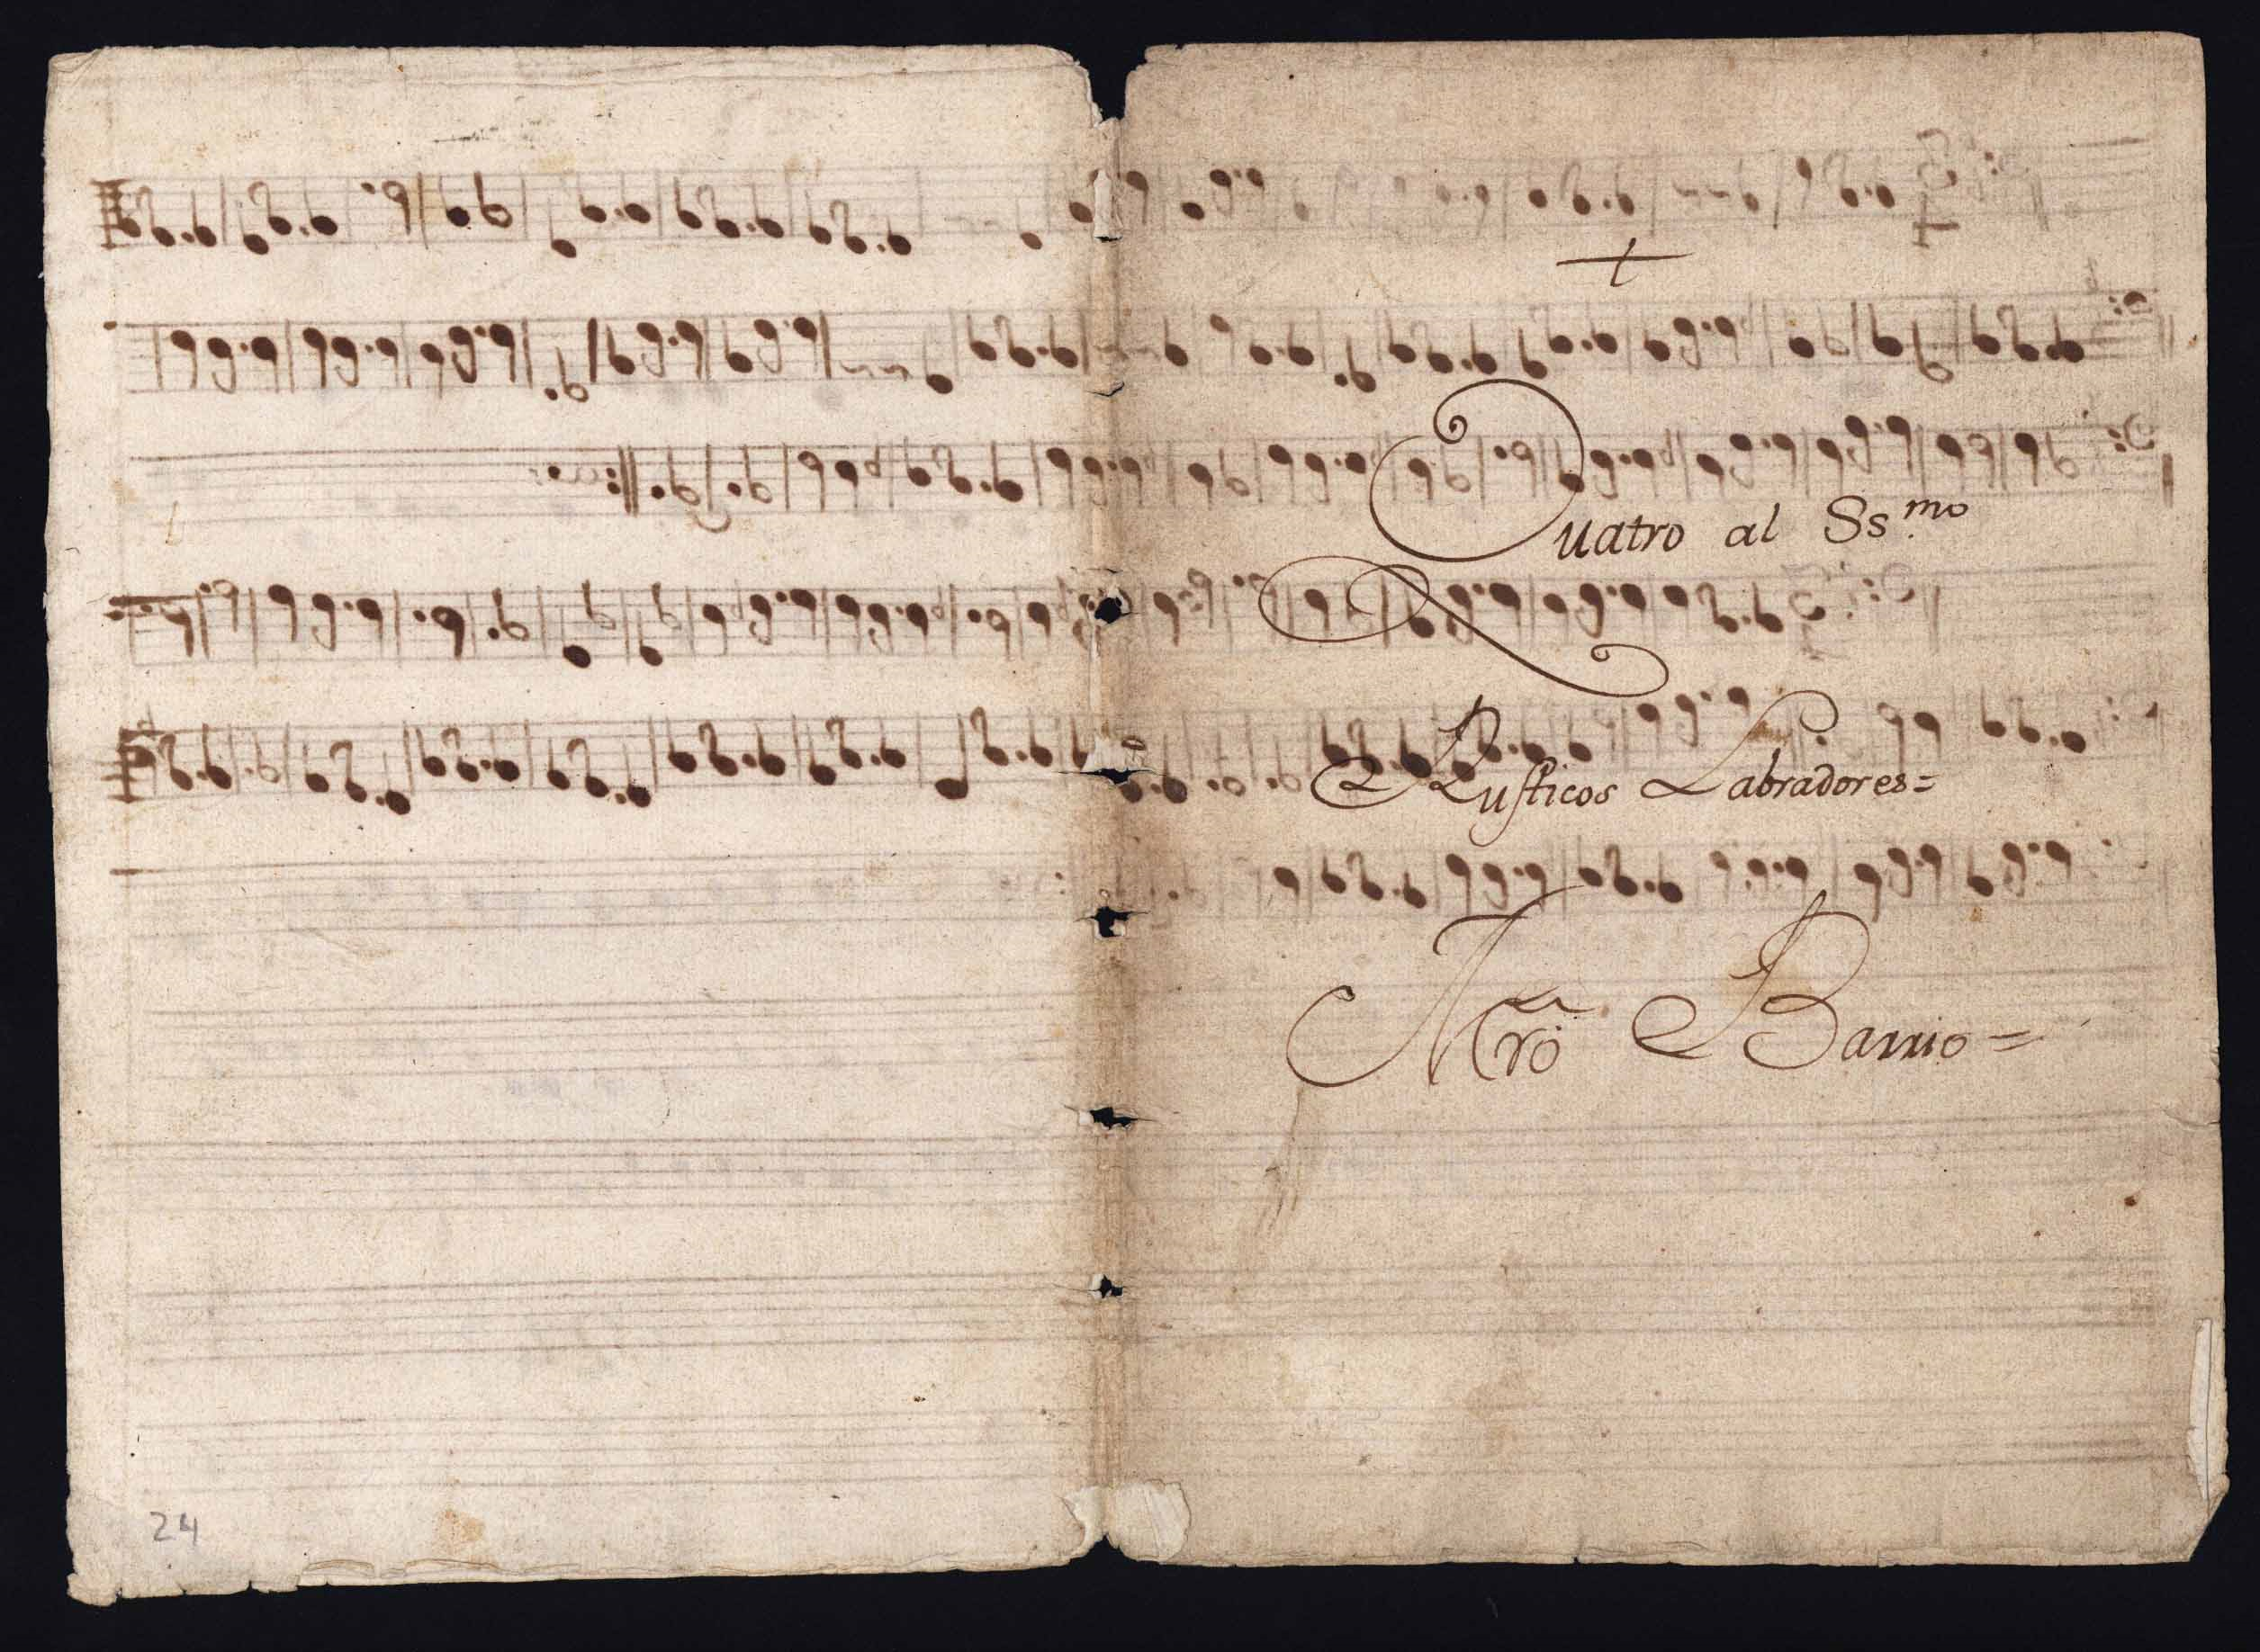 Quatro al Ss.mo
Rusticos Labradores=
Mrō Barrio=
24